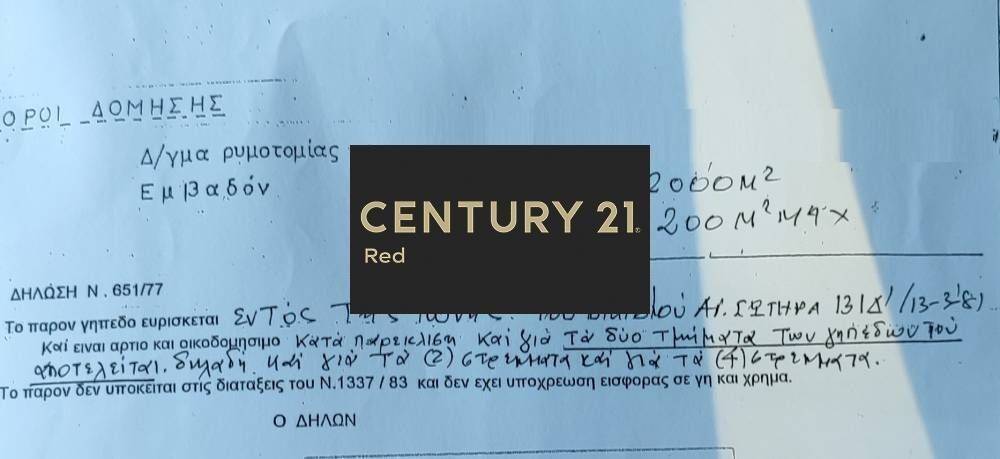 ΟΡΟΙ ΔΟΜΗΣΗΣ
Δ/γμα ρυμοτομίας
Εμβαδόν
2000 Μ²
200 Μ² ΜΑΧ
CENTURY 21
Red
ΔΗΛΩΣΗ Ν. 651/77
Το παρον γηπεδο ευρισκεται εντός της ΑΓ. ΣΩΤΗΡΑ 131Δ'/13-3-81)
Καί ειναι αρτιο και οικοδομησιμο κατά παρέκλιση και γιά τά δύο τμήματα των γηπέδων πού
αποτελείται. δηλαδή και γιά τά (2) στρέμματα και γιά τά (4) στρέμματα.
Το παρον δεν υποκειται στις διαταξεις του Ν.1337 / 83 και δεν εχει υποχρεωση εισφορας σε γη και χρημα.
Ο ΔΗΛΩΝ